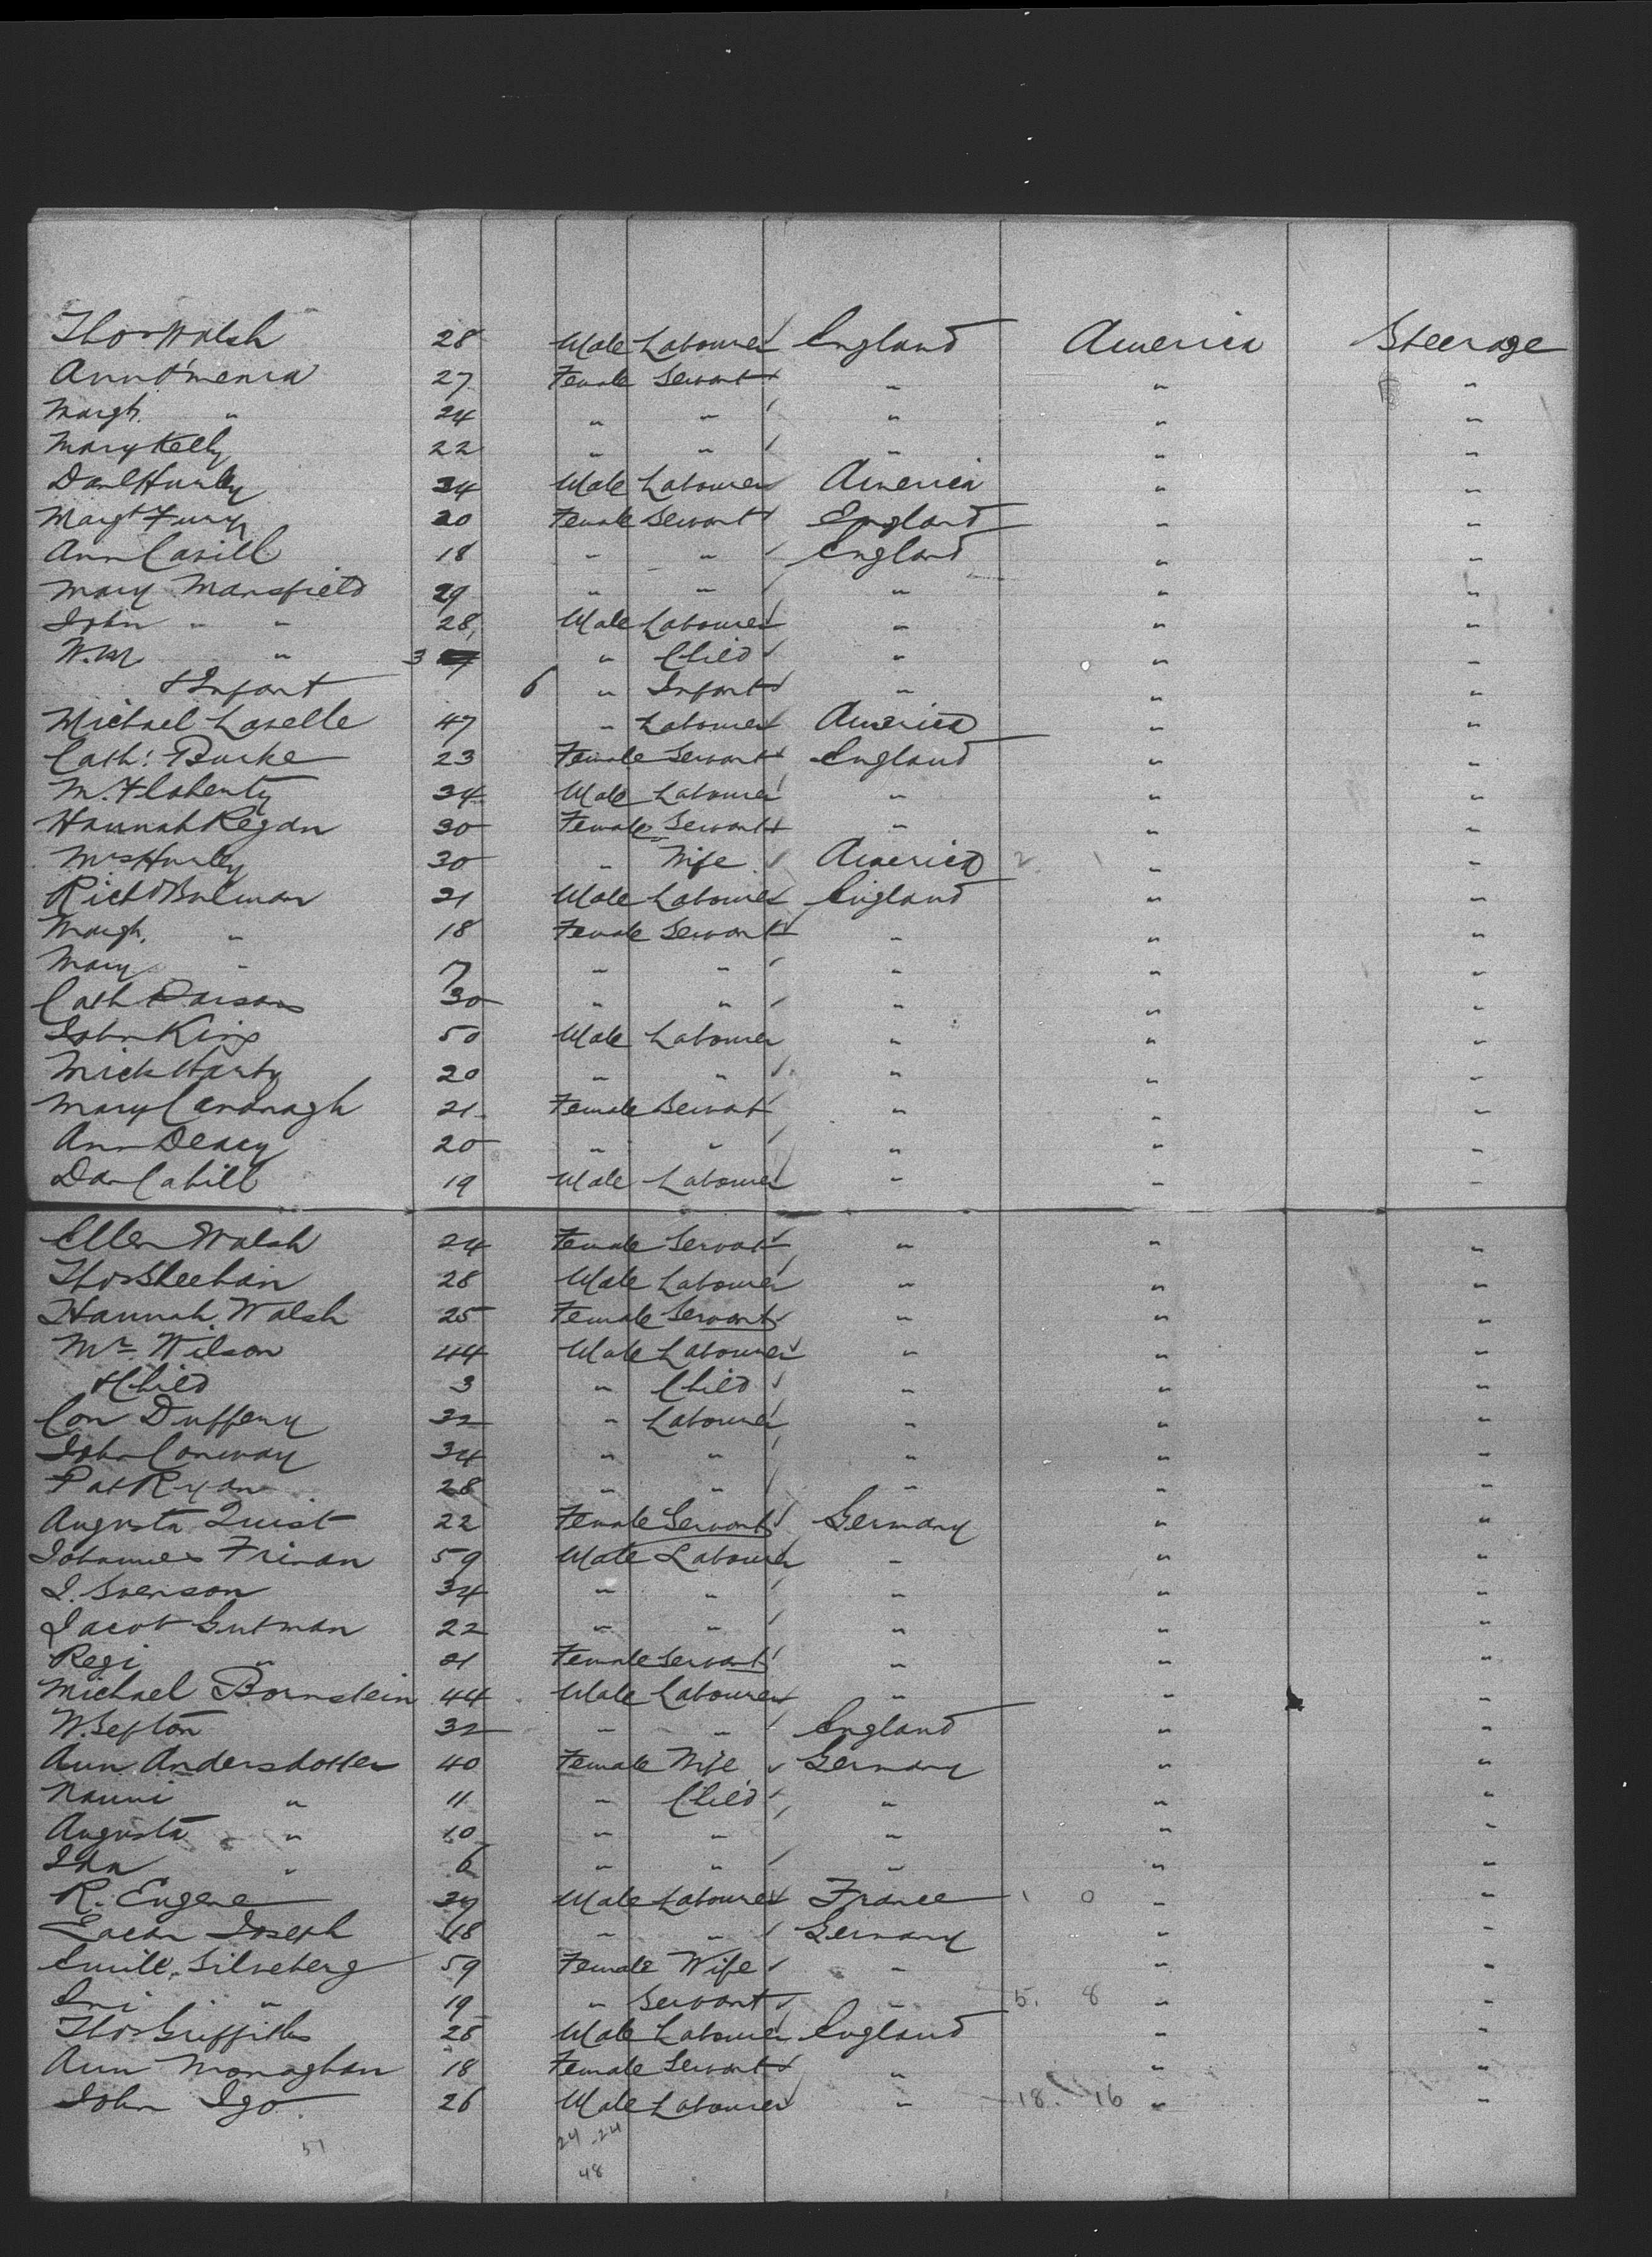 Thos Walsh 28 Male Labourer England America Steerage
Ann 27 Female Servant " " "
Margt. " 24 " " " " "
Mary Kelly 22 " " " " "
Danl Hurley 34 Male Labourer America " "
Margt Fury 20 Female Servant England " "
Ann Cahill 18 " " England " "
Mary Mansfield 29 " " " " "
John " " 28 Male Labourer " " "
Wm " 3 " Child " " "
& Infant 6 " Infant " " "
Michael Lavelle 47 " Labourer America " "
Cath: Burke 23 Female Servant England " "
M. Flaherty 34 Male Labourer " " "
Hannah Regan 30 Female Servant " " "
Mrs Hurley 30 " Wife America 2 "
Richd Bulman 21 Male Labourer England " "
Margt. " 18 Female Servant " " "
Mary " 7 " " " " "
Cath Parsons 30 " " " " "
John King 50 Male Labourer " " "
Mick Harty 20 " " " " "
Mary Cavanagh 21 Female Servant " " "
Ann Deacy 20 " " " " "
Dan Cahill 19 Male Labourer " " "
Ellen Walsh 24 Female Servant " " "
Thos Sheehan 28 Male Labourer " " "
Hannah Walsh 25 Female Servant " " "
Mr. Wilson 44 Male Labourer " " "
& Child 3 " Child " " "
Con Duffeny 32 " Labourer " " "
John Conway 34 " " " " "
Pat Ryan 28 " " " " "
Augusta Quist 22 Female Servant Germany " "
Johannes Friman 59 Male Labourer " " "
J. Svenson 34 " " " " "
Jacob Gutman 22 " " " " "
Regi " 21 Female Servant " " "
Michael Bornstein 44 Male Labourer " " "
W. Sefton 32 " " England " "
Ann Andersdotter 40 Female Wife Germany " "
Nanni " 11 " Child " " "
Augusta " 10 " " " " "
Ida " 6 " " " " "
R. Eugene Male Labourer France 1 0 " "
Joseph 18 " " Germany " "
Emill. Silveberg 59 Female Wife " " "
" 19 " Servant " 5. 8 " "
Thos Griffiths 28 Male Labourer England " "
Ann Monaghan 18 Female Servant " " "
John Igo 26 Male Labourer " 18. 16 " "
51 24 - 24
48